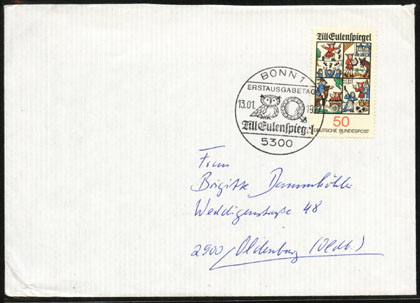 Till Eulenspiegel
50
DEUTSCHE BUNDESPOST
BONN 1
ERSTAUSGABETAG
13.01.
Till Eulenspiegel
5300
Frau
Brigitte
Weddigenstraße 48
2900 Oldenburg (Oldb.)